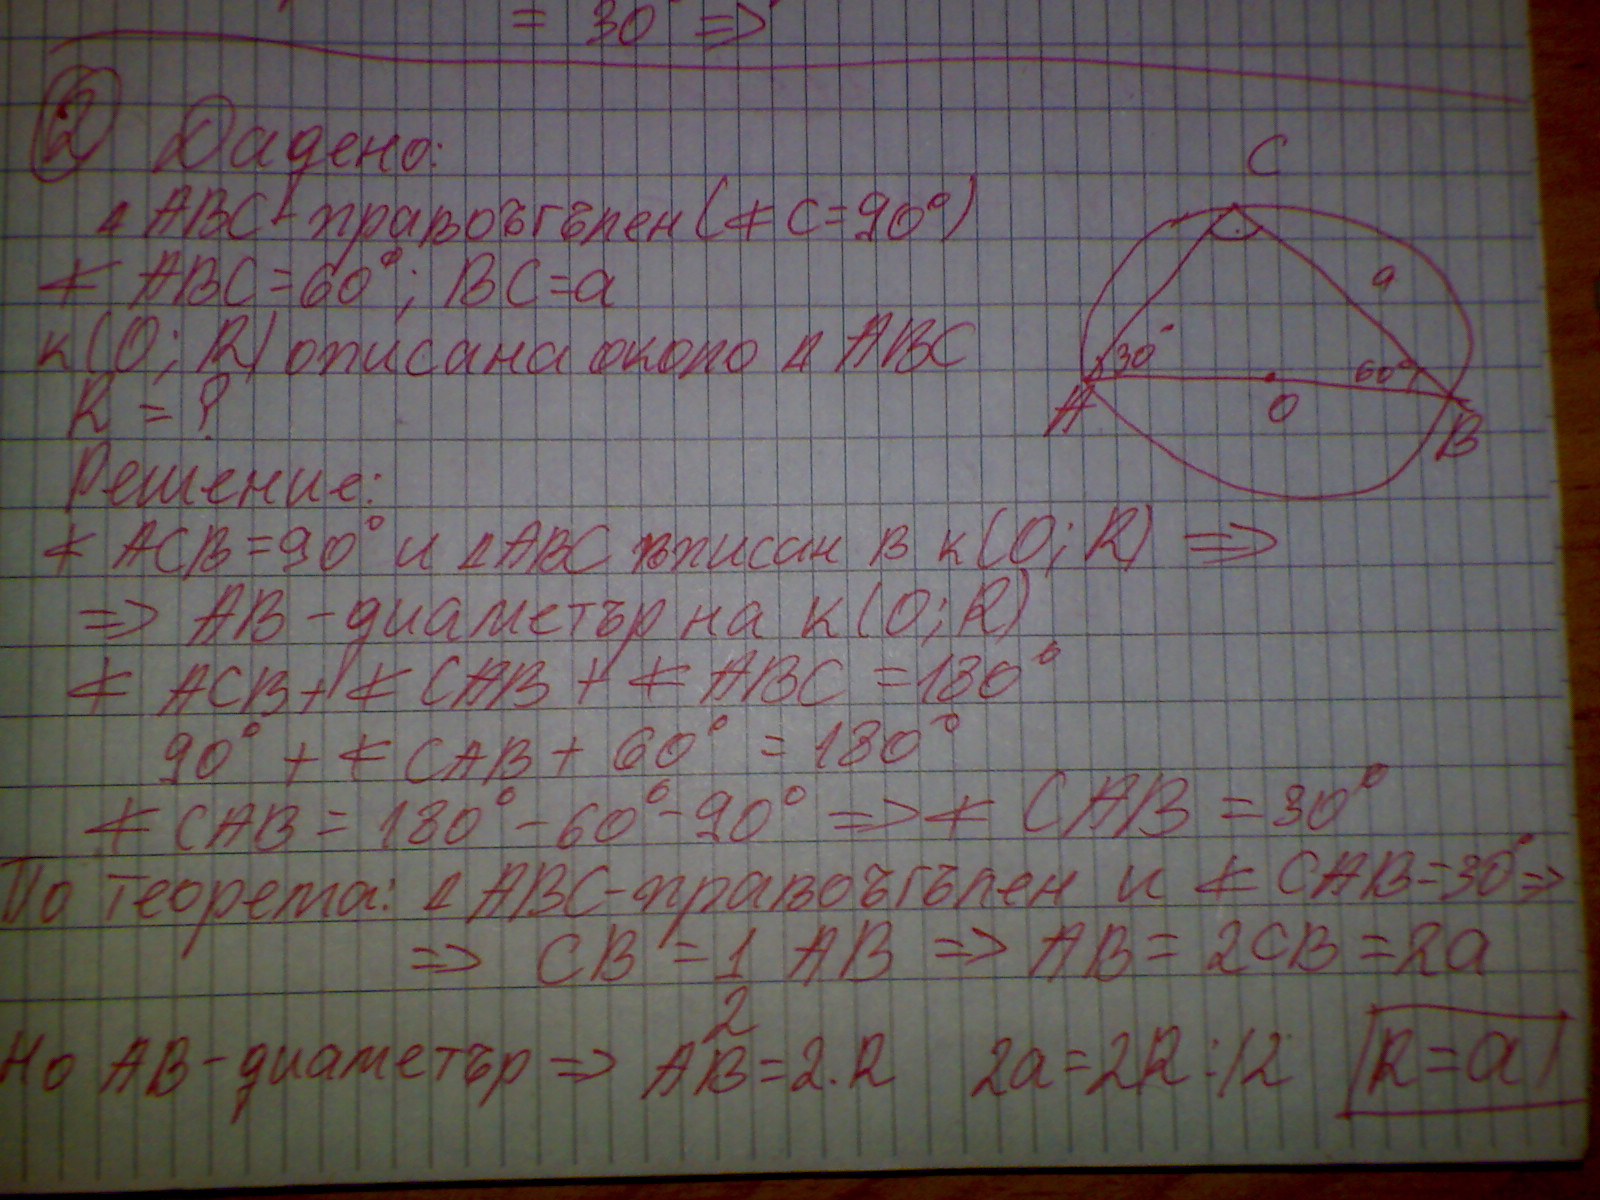 = 30° =>
② Дадено:
△ ABC - правоъгълен (∢ C = 90°)
∢ ABC = 60°; BC = a
k(O; R) описана около △ ABC
R = ?
Решение:
∢ ACB = 90° и △ ABC вписан в k(O; R) =>
=> AB - диаметър на k(O; R)
∢ ACB + ∢ CAB + ∢ ABC = 180°
90° + ∢ CAB + 60° = 180°
∢ CAB = 180° - 60° - 90° => ∢ CAB = 30°
По теорема: △ ABC - правоъгълен и ∢ CAB = 30° =>
=> CB = 1/2 AB => AB = 2CB = 2a
Но AB - диаметър => AB = 2.R 2a = 2R :/2 R = a
C
a
30°
60°
A
O
B